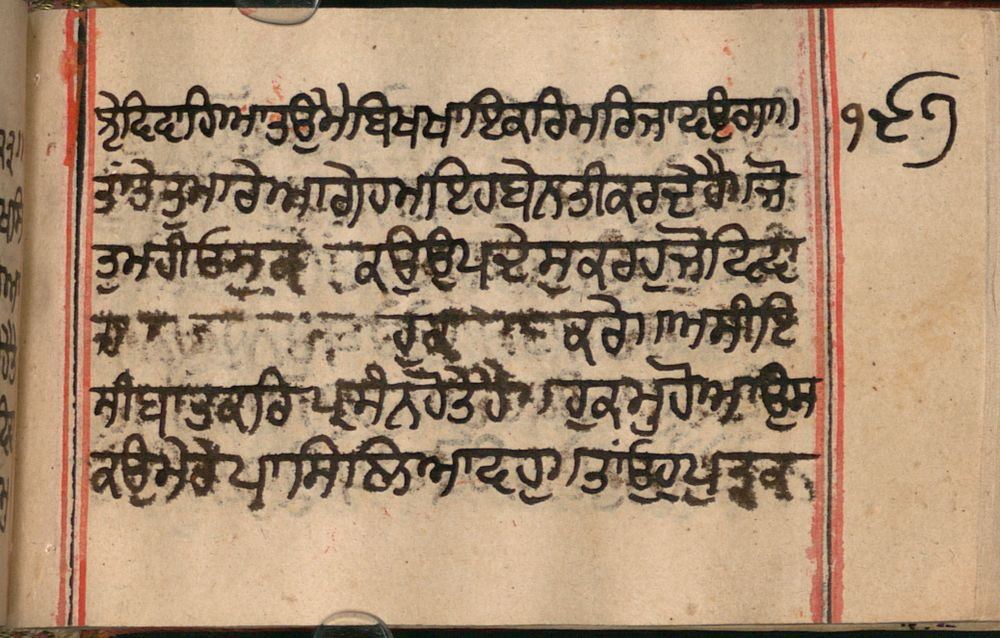 ਦਾਹਿਆ ਤਉ ਮੈ ਬਿਖ ਖਾਇ ਕਰਿ ਮਰਿ ਜਾਦਉਗਾ॥ ੧੬੭
ਤਾਂ ਤੇ ਤੁਮਾਰੇ ਆਗੇ ਹਮ ਇਹ ਬੇਨਤੀ ਕਰਦੇ ਹੈ। ਜੋ
ਤੁਮਹੀ ਉਸ ਕਉ ਉਪਦੇਸੁ ਕਰਹੁ ਜੋ
ਕਰੇਗਾ ਅਸੀ ਇ
ਸੀ ਬਾਤੁ ਕਰਿ ਹੋਤੇ ਹੈ। ਹੁਕਮੁ ਹੋਆ ਉਸ
ਕਉ ਮੇਰੇ ਪਾਸਿ ਲਿਆਦਹੁ। ਤਾਂ ਉਹੁ ਪੁਤ੍ਰ ਕ